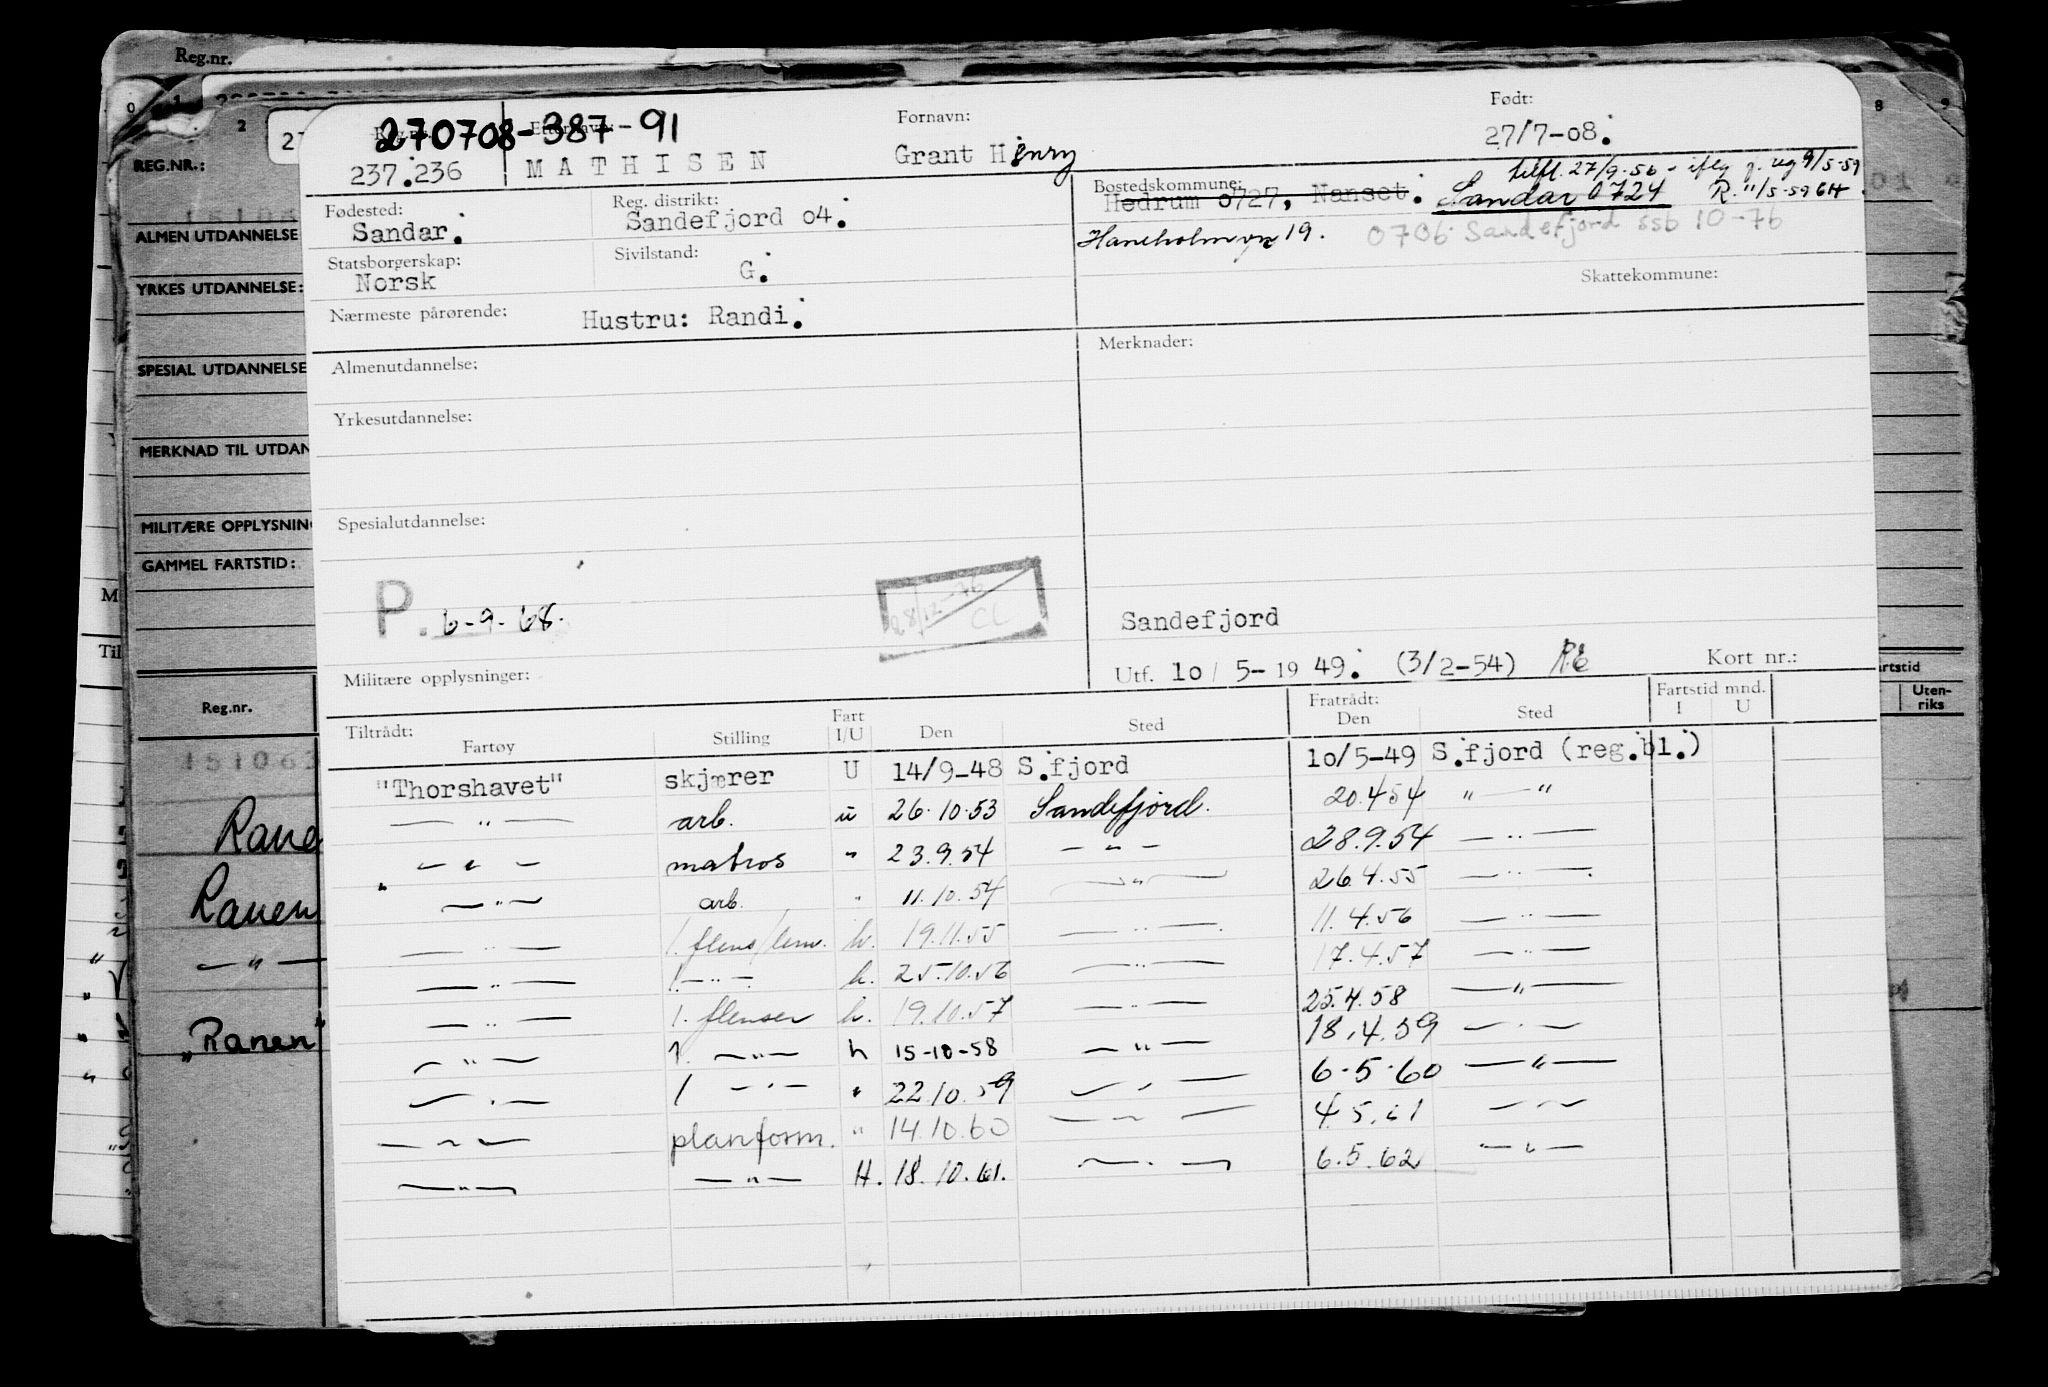 Reg.nr.
REG.NR.:
ALMEN UTDANNELSE
YRKES UTDANNELSE:
SPESIAL UTDANNELSE
MERKNAD TIL UTDAN
MILITÆRE OPPLYSNIN
GAMMEL FARTSTID:
Reg.nr.
Rane
Ranen
— " —
"Ranen"
Uten-
riks
270708-387-91
Fornavn:
Født:
237.236 MATHISEN Grant Henry 27/7-08.
Fødested: Reg. distrikt: Bostedskommune:
Sandar. Sandefjord o4. Hedrum o727, Nanset. Sandar 0724
tilfl. 27/9-56 - iflg 9/5-59
R. 11/5-59 GH.
Haneholmvn 19. 0706 Sandefjord ssb 10-76
Statsborgerskap: Sivilstand:
Norsk G.
Skattekommune:
Nærmeste pårørende: Hustru: Randi.
Almenutdannelse: Merknader:
Yrkesutdannelse:
Spesialutdannelse:
P. 6-9-68.
28/12-76
CL
Sandefjord
Militære opplysninger: Utf. 1o / 5- 19 49. (3/2-54) Kort nr.:
Tiltrådt: Fartøy Stilling Fart I/U Den Sted Fratrådt: Den Sted Fartstid mnd. I U
"Thorshavet" skjærer U 14/9-48 S.fjord 1o/5-49 S.fjord (reg.bl.)
— " — arb. u 26.10.53 Sandefjord. 20.4.54 " — "
— " — matros " 23.9.54 — " — 28.9.54 — " —
— " — arb. " 11.10.54 — " — 26.4.55 — " —
— " — 1. flens/lem. h. 19.11.55 — " — 11.4.56 — " —
— " — 1. — " — h. 25.10.56 — " — 17.4.57 — " —
— " — 1. flenser h. 19.10.57 — " — 25.4.58 — " —
— " — 1. — " — h 15-10-58 — " — 18.4.59 — " —
— " — 1 — " — " 22.10.59 — " — 6-5-60 — " —
— " — planform. " 14.10.60 — " — 4.5.61 — " —
— " — — " — H. 18.10.61. — " — 6.5.62 — " —